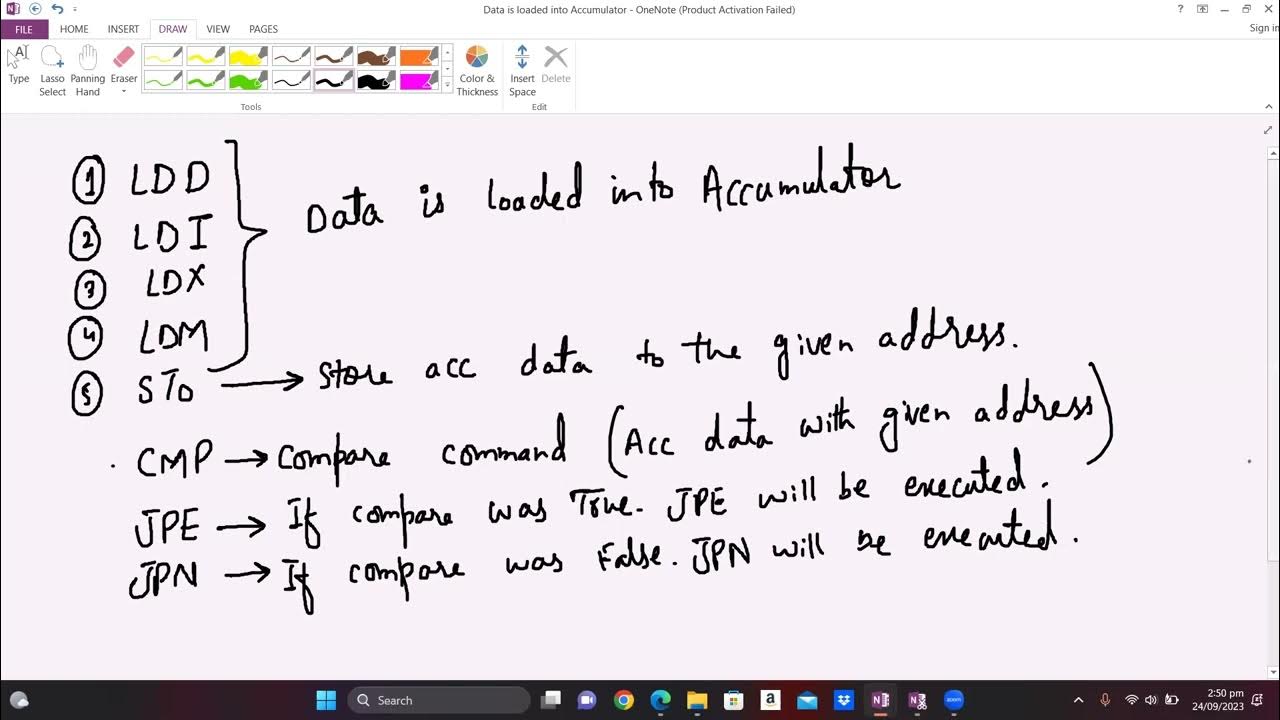 Data is loaded into Accumulator - OneNote (Product Activation Failed)
FILE HOME INSERT DRAW VIEW PAGES
Sign in
Type
Lasso Select
Panning Hand
Eraser
Color & Thickness
Insert Space
Delete
Tools
Edit
① LDD
Data is loaded into Accumulator
② LDI
③ LDX
④ LDM
⑤ STO → Store acc data to the given address.
CMP → Compare command (Acc data with given address)
JPE → If compare was True. JPE will be executed.
JPN → If compare was False. JPN will be executed.
Search
zoom
2:50 pm
24/09/2023